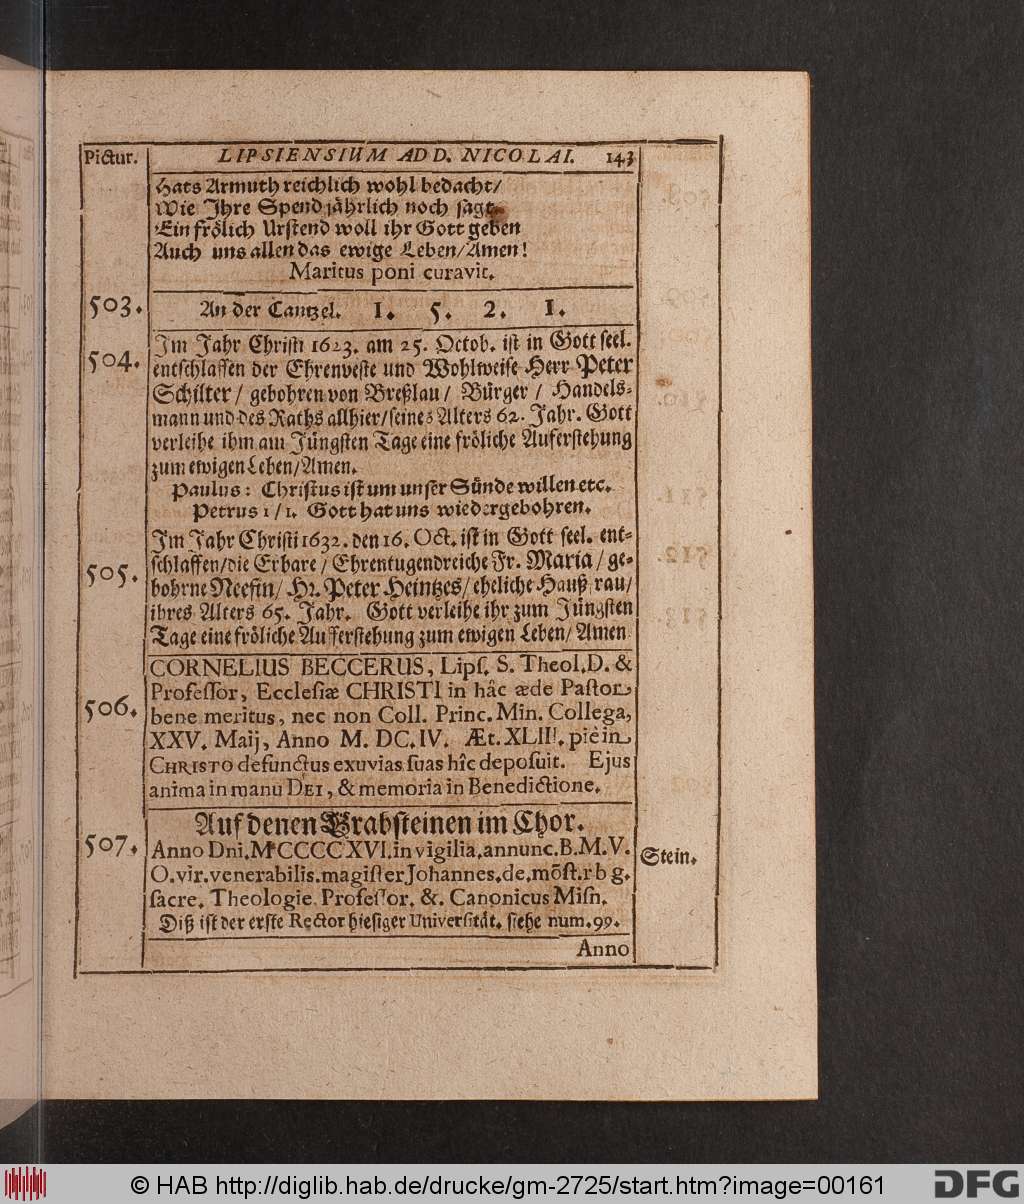 Pictur. LIPSIENSIUM ADD. NICOLAI. 143
Hats Armuth reichlich wohl bedacht/
Wie Ihre Spend jährlich noch sagt.
Ein frölich Urstend woll ihr Gott geben
Auch uns allen das ewige Leben/Amen!
Maritus poni curavit.
503. An der Cantzel. 1. 5. 2. 1.
504. Im Jahr Christi 1623. am 25. Octob. ist in Gott seel.
entschlaffen der Ehrenveste und Wohlweise Herr Peter
Schilter/ gebohren von Breßlau/ Bürger/ Handels-
mann und des Raths allhier/seines Alters 62. Jahr. Gott
verleihe ihm am Jüngsten Tage eine fröliche Auferstehung
zum ewigen Leben/Amen.
Paulus: Christus ist um unser Sünde willen etc.
Petrus 1/1. Gott hat uns wiedergebohren.
505. Im Jahr Christi 1632. den 16. Oct. ist in Gott seel. ent-
schlaffen/die Erbare/ Ehrentugendreiche Fr. Maria/ ge-
bohrne Neefin/ Hr. Peter Heintzes/ eheliche Haußfrau/
ihres Alters 65. Jahr. Gott verleihe ihr zum Jüngsten
Tage eine fröliche Aufferstehung zum ewigen Leben/ Amen
506. CORNELIUS BECCERUS, Lipſ. S. Theol. D. &
Profeſſor, Eccleſiæ CHRISTI in hâc æde Paſtor
bene meritus, nec non Coll. Princ. Min. Collega,
XXV. Maij, Anno M. DC. IV. Æt. XLIII. piè in
CHRISTO defunctus exuvias ſuas hîc depoſuit. Ejus
anima in manu DEI, & memoria in Benedictione.
Auf denen Grabsteinen im Chor.
507. Anno Dni. MCCCCXVI. in vigilia. annunc. B. M. V. Stein.
O. vir. venerabilis. magiſter Johannes. de. mõſt. rbg.
ſacre. Theologie. Profeſſor. &. Canonicus Miſn.
Diß ist der erste Rector hiesiger Universität. siehe num. 99.
Anno
© HAB http://diglib.hab.de/drucke/gm-2725/start.htm?image=00161
DFG